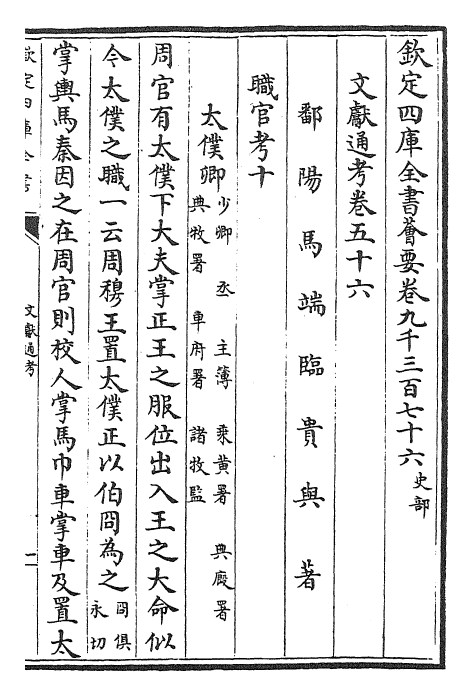 欽定四庫全書薈要卷九千三百七十六史部
文獻通考卷五十六
鄱陽馬端臨貴與著
職官考十
太僕卿少卿 丞 主簿 乘黃署 典廐署
典牧署 車府署 諸牧監
周官有太僕下大夫掌正王之服位出入王之大命似
今太僕之職一云周穆王置太僕正以伯冏為之冏俱
永切
掌輿馬秦因之在周官則校人掌馬巾車掌車及置太
文獻通考
一